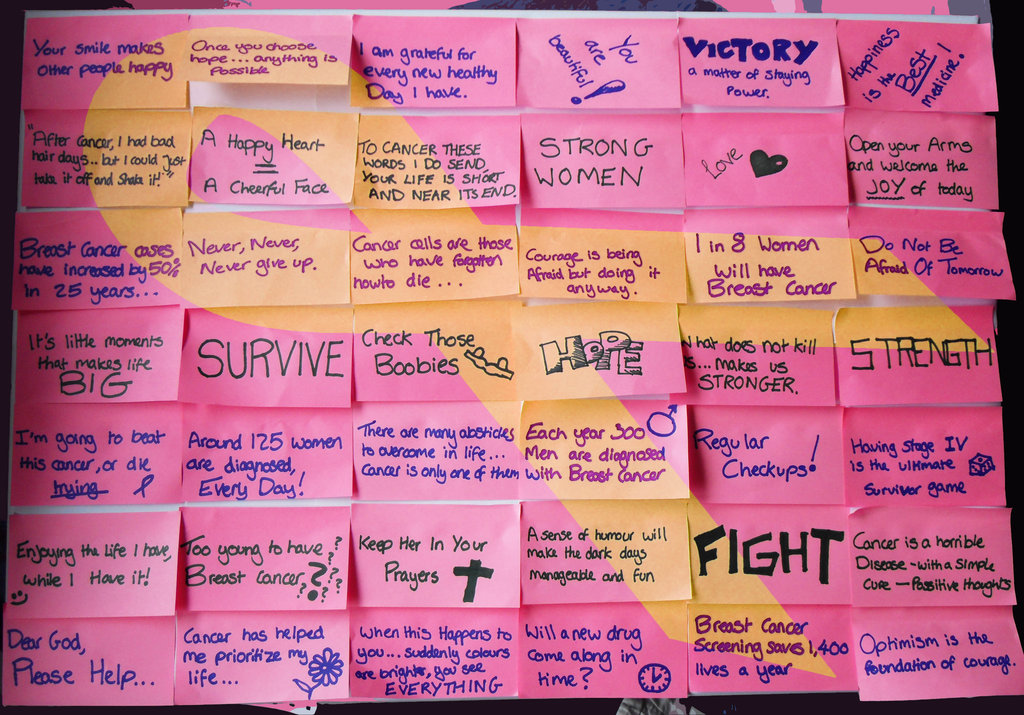 Your smile makes
other people happy
Once you choose
hope... anything is
Possible
I am grateful for
every new healthy
Day I have.
You
are
beautiful!
VICTORY
a matter of staying
Power.
Happiness
is the
Best
medicine!
"After Cancer, I had bad
hair days.. but I could Just
take it off and Shake it!"
A Happy Heart
=
A Cheerful Face
TO CANCER THESE
WORDS I DO SEND
YOUR LIFE IS SHORT
AND NEAR ITS END.
STRONG
WOMEN
Love
Open your Arms
and welcome the
JOY of today
Breast Cancer cases
have increased by 50%
in 25 years...
Never, Never,
Never give up.
Cancer cells are those
who have forgotten
how to die...
Courage is being
Afraid but doing it
any way.
1 in 8 Women
will have
Breast Cancer
Do Not Be
Afraid Of Tomorrow
It's little moments
that makes life
BIG
SURVIVE
Check Those
Boobies
HOPE
What does not kill
us... makes us
STRONGER.
STRENGTH
I'm going to beat
this cancer, or die
trying
Around 125 women
are diagnosed,
Every Day!
There are many obsticles
to overcome in life...
Cancer is only one of them
Each year 300
Men are diagnosed
with Breast Cancer
Regular
Checkups!
Having stage IV
is the ultimate
Survivor game
Enjoying the life I have,
while I Have it!
Too young to have
Breast Cancer,?
????
Keep Her In Your
Prayers
A sense of humour will
make the dark days
manageable and fun
FIGHT
Cancer is a horrible
Disease - with a simple
Cure - Possitive thoughts
Dear God,
Please Help...
Cancer has helped
me prioritize my
life...
When this Happens to
you... suddenly colours
are brighter, you see
EVERYTHING
Will a new drug
come along in
time?
Breast Cancer
Screening saves 1,400
lives a year
Optimism is the
foundation of courage.